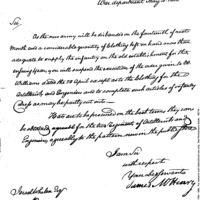 War department May 12. 1800
Sir,
As the army will be disbanded on the fourteenth of next
Month and a considerable quantity of Clothing left on hand more than
adequate to supply the infantry on the old establishment for the
ensuing year, you will suspend the execution of the order given to Mr.
Williams dated the 28 April except as to the Cloathing for the
Artillerists and Engineers and to complete such articles of infantry
as may be partly cut out.
Hats are to be procured on the best terms, they may
be cocked agreeable for the two Regiments of Artillerists and
Engineers agreeably to the pattern now in the public store
I am Sir
with respect
Your obed servant
James McHenry
Israel Whelen Esqr